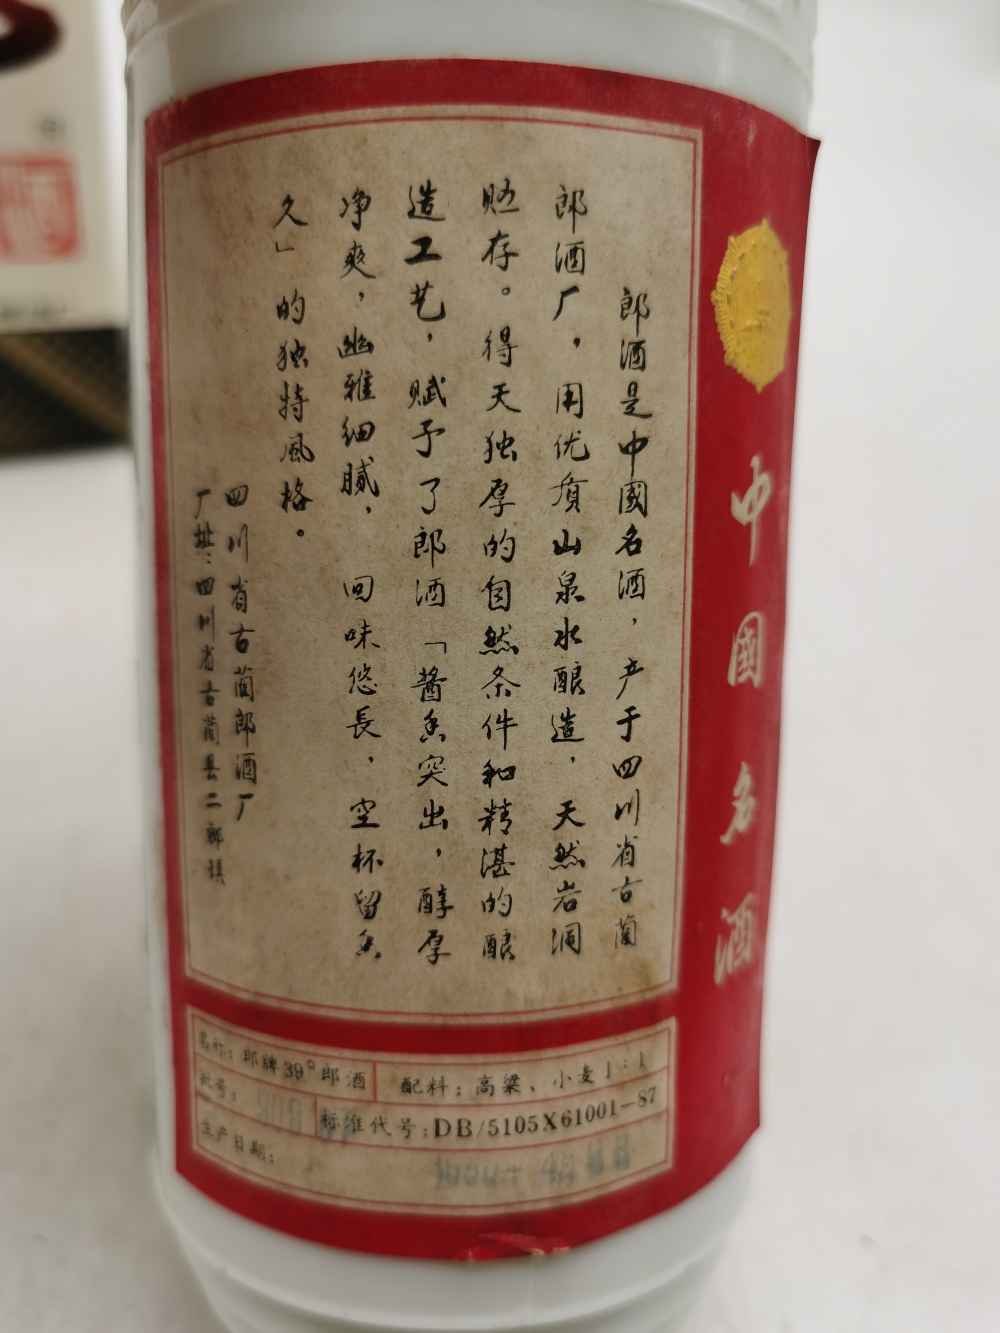 郎酒是中國名酒，产于四川省古蔺
郎酒厂，用优质山泉水酿造，天然岩洞
贮存。得天独厚的自然条件和精湛的酿
造工艺，赋予了郎酒「酱香突出，醇厚
净爽，幽雅细腻，回味悠長，空杯留香
久」的独特風格。
四川省古蔺郎酒厂
厂址：四川省古蔺县二郎镇
中國名酒
名称：郎牌39°郎酒
配料：高粱、小麦1：1
批号：
标准代号：DB/5105X61001-87
生产日期：